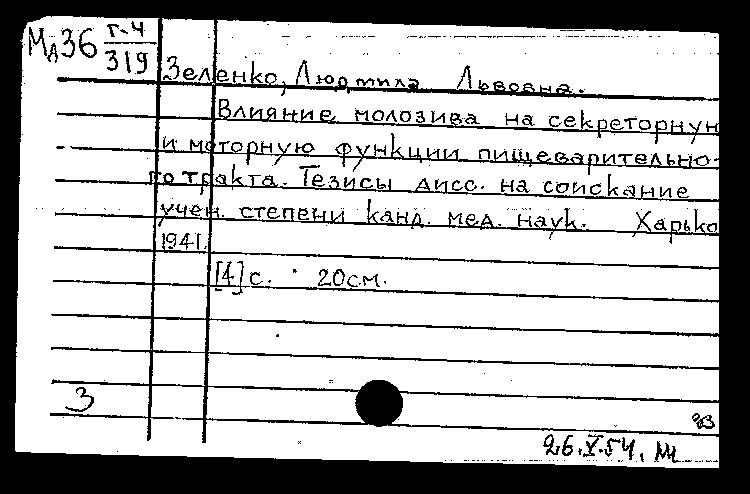 Мд36 Г-4
319
Зеленко, Людмила Львовна.
Влияние молозива на секреторную
и моторную функции пищеварительно-
го тракта. Тезисы дисс. на соискание
учен. степени канд. мед. наук. Харько
1941.
[4] с. 20см.
З
26.V.54.